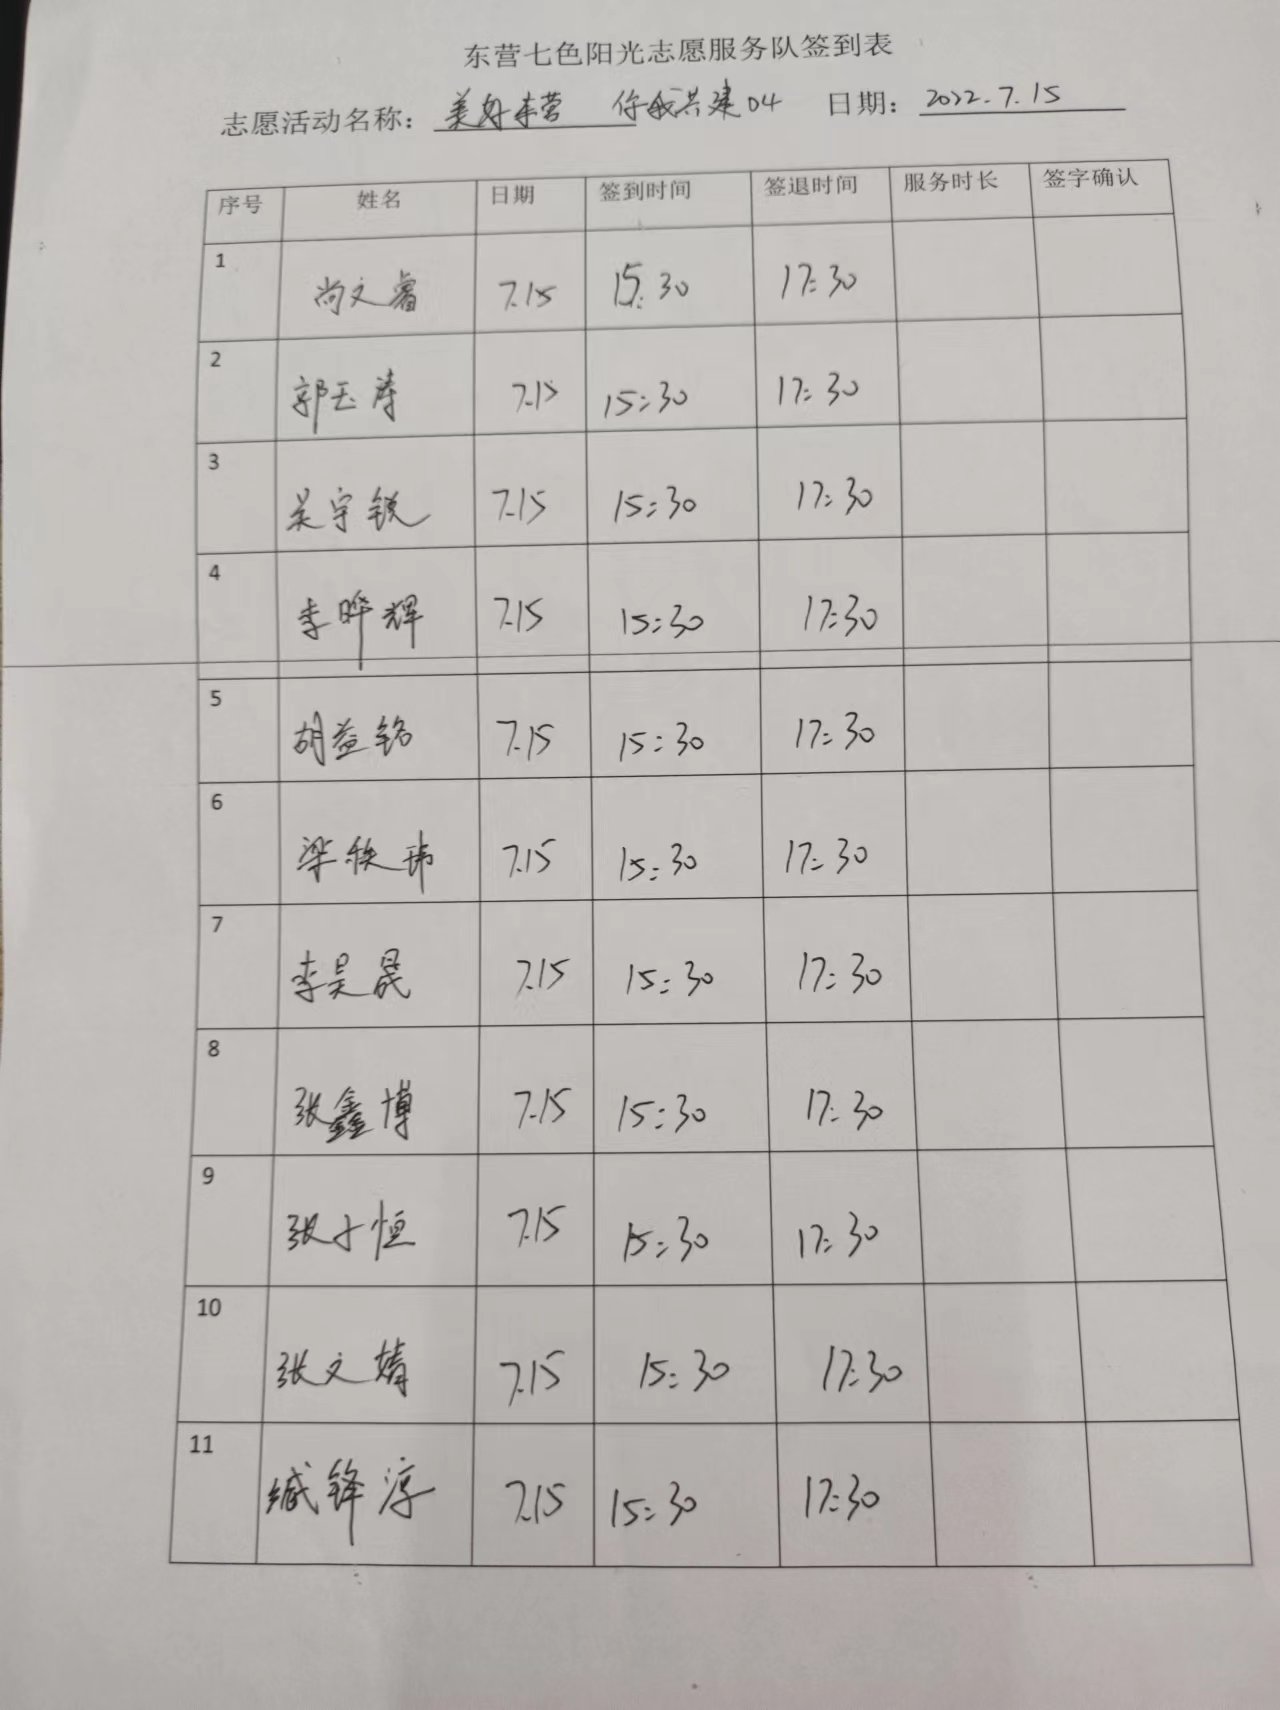 东营七色阳光志愿服务队签到表
志愿活动名称：美好东营 你我共建04 日期：2022.7.15
序号 姓名 日期 签到时间 签退时间 服务时长 签字确认
1 尚文睿 7.15 15:30 17:30
2 郭玉涛 7.15 15:30 17:30
3 吴宇锐 7.15 15:30 17:30
4 李晔辉 7.15 15:30 17:30
5 胡益铭 7.15 15:30 17:30
6 梁秩玮 7.15 15:30 17:30
7 李昊晟 7.15 15:30 17:30
8 张鑫博 7.15 15:30 17:30
9 张小恒 7.15 15:30 17:30
10 张文婧 7.15 15:30 17:30
11 臧锋淳 7.15 15:30 17:30